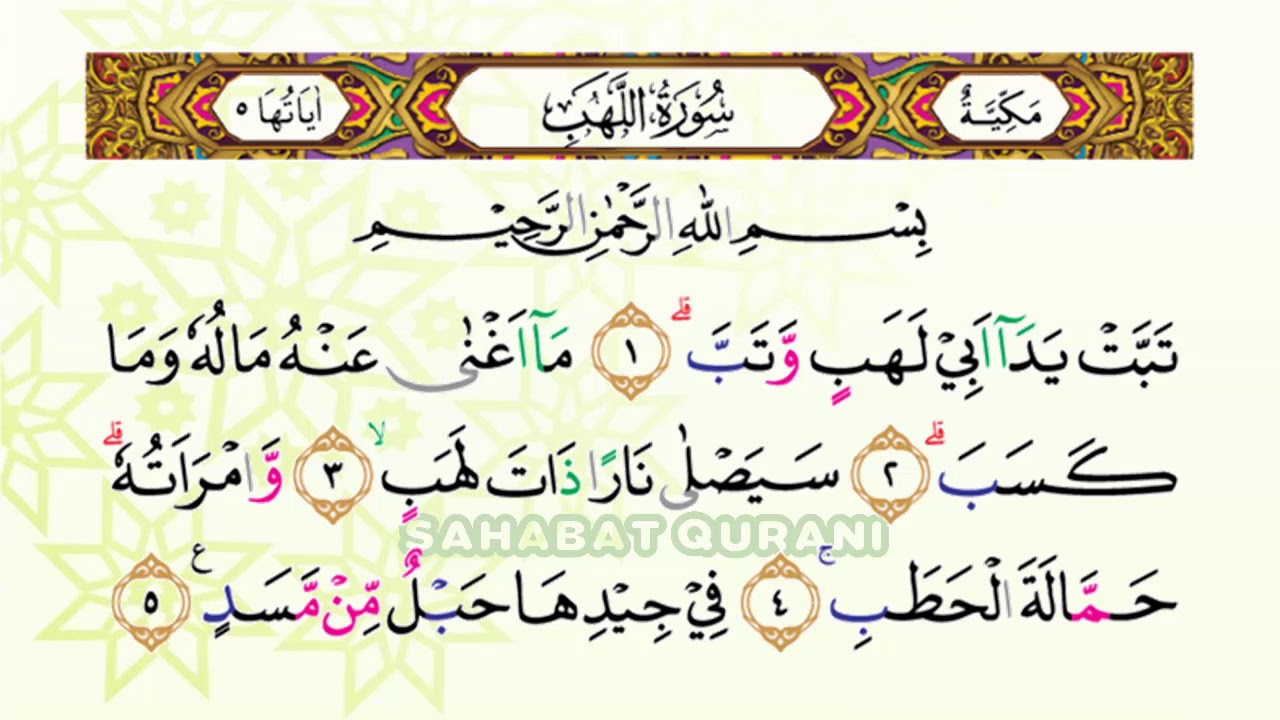 مَكِّيَّةٌ سُوْرَةُ اللَّهَبِ اٰيَاتُهَا ٥
بِسْمِ اللّٰهِ الرَّحْمٰنِ الرَّحِيْمِ
تَبَّتْ يَدَآ اَبِيْ لَهَبٍ وَّتَبَّۗ ١ مَآ اَغْنٰى عَنْهُ مَالُهٗ وَمَا
كَسَبَۗ ٢ سَيَصْلٰى نَارًا ذَاتَ لَهَبٍۙ ٣ وَّامْرَاَتُهٗۗ
SAHABAT QURANI
حَمَّالَةَ الْحَطَبِۚ ٤ فِيْ جِيْدِهَا حَبْلٌ مِّنْ مَّسَدٍ ࣖ ٥